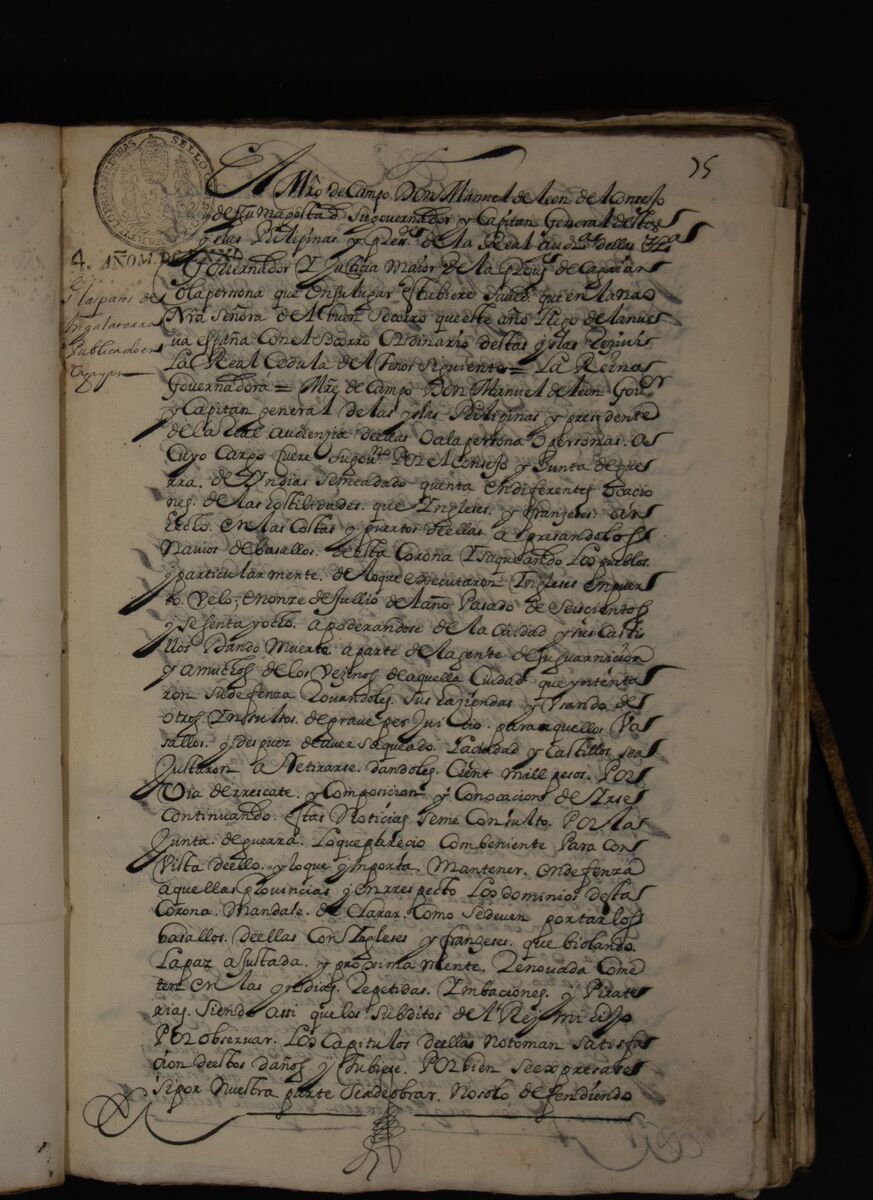 75
SELLO
4. AÑO M. DC. LXXI
Las paçes de
Yngalaterra
Publicado en
Cagayan
El Mro de Campo Don Manuel de leon del Consejo
de su magestad. Su governador y Capitan General destas
yslas Philipinas y Presite de la Real audia dellas
Governador y Justicia maior de la Prouia de Cagaian
o la persona que en su lugar estubiere saued que en la nao
Nra senora del buen Socorro que este año llego de la nue
va españa con el Socorro Ordinario destas yslas Reciuis
La Real Cedula del tenor siguiente = La Reina
Governadora = Mro de Campo Don Manuel de leon Gour
y Capitan general de las yslas Philipinas y presidente
de la Real audiencia dellas O a la persona O personas. a
Cuyo Cargo fuere su gouno Por el Consejo y Junta de gue
rra. de Yndias se me a dado quenta en diferentes ocacio
nes. de las hostilidades. que Yngleses. y françeses. an
hecho. en las Costas y puertos dellas apresando los
Nauios de basallos. desta Corona Y saqueando Los pueblos.
y particularmente. de lo que executaron Yngleses en puer
to. Velo; en onze de Jullio del año Pasado de Seiscientos
y sesenta y ocho. apoderandose de la Ciudad y sus Casti
llos Dando Muerte a parte de la gente de su guarnicion
y a muchos de los Vezinos de aquella Ciudad que yntenta
ron su defenza Rouandoles. Sus haziendas y Usando de
otros Ynsultos. de graue perjuicio. para aquellos Va
sallos. y despuez de aver saqueado. La ciudad y Castillos se a
Justaron a Retirarse. dandoles. Cient mill pesos. Por
Via de rrescate. y Composicion y Con ocacion de yrse
Continuando. estas Noticias se me Consulto. Por la
Junta. de guerra. Lo que parecio Combeniente Para Con
Vista de ello. y lo que ymporta. Mantener. en defenza
aquellas Provincias y en rrespecto Los dominios desta
Corona. Mandase. declarar. Como se deuen portar los
basallos. de ellas Con Yngleses y françeses. que biolando.
La paz ajustada. y proximamente. Renouada Come
ten en las yndias. Repetidas. Ymbaciones. y Pirate
rias. Siendo assi que los Subditos del Rey mi hijo
Por observar. Los Capitulos de ellas No toman satisfa
cion de estos daños y tubiese. Por bien se expresase
si por Nuestra parte se a de obrar. No solo defendiendo